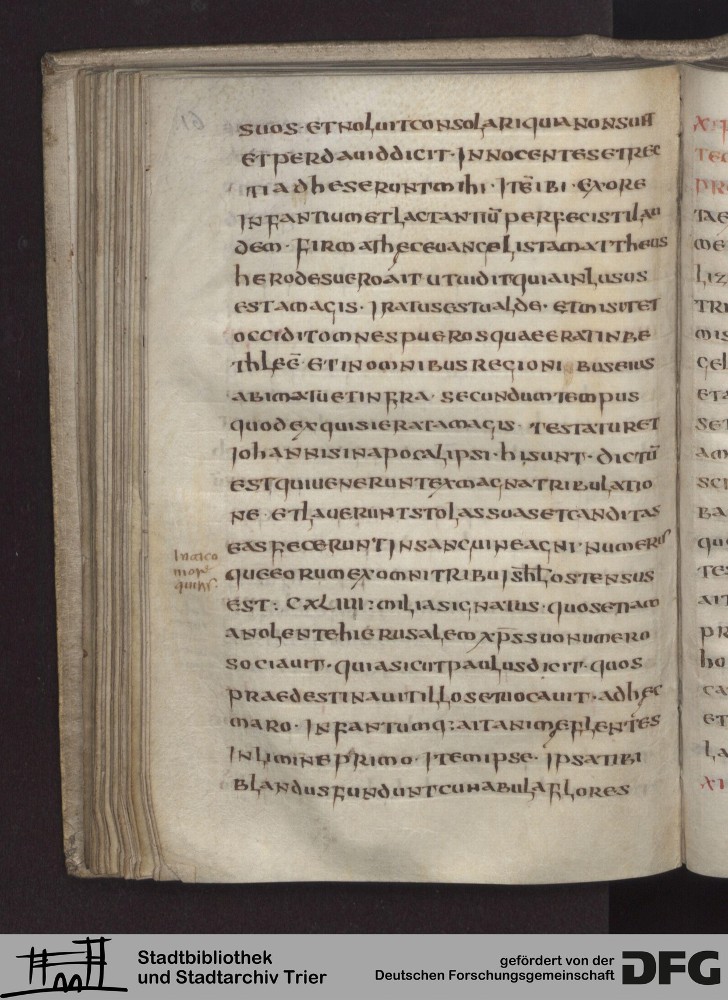 suos · et noluit consolari quia non sunt
et per dauid dicit · Innocentes et rec
ti adheserunt mihi · Itē ibi · Ex ore
Infantium et lactantiū perfecisti lau
dem · firmat hec euangelista mattheus
herodes uero ait ut uidit quia inlusus
est a magis · Iratus est ualde · et misit et
occidit omnes pueros quae erat in be
thleē et in omnibus regioni bus eius
a bimatu et infra · secundum tempus
quod exquisierat a magis · testatur et
Iohannis in apocalipsi · hi sunt · dictū
est qui uenerunt ex magna tribulatio
ne · et lauerunt stolas suas et canditas
eas fecerunt In sanguine agni · numerus
que eorum ex omni tribu isrhl ostensus
est : CXLIIII : milia signatus · quos etiam
anolente hierusalem xp̄s suo numero
sociauit · quia sicut paulus dicit · quos
praedestinauit illos et uocauit · ad hec
maro · Infantumq: ait animę flentes
In limine primo · Item ipse · Ipsa tibi
blandus fundunt cunabula flores
Stadtbibliothek
und Stadtarchiv Trier
gefördert von der
Deutschen Forschungsgemeinschaft
DFG